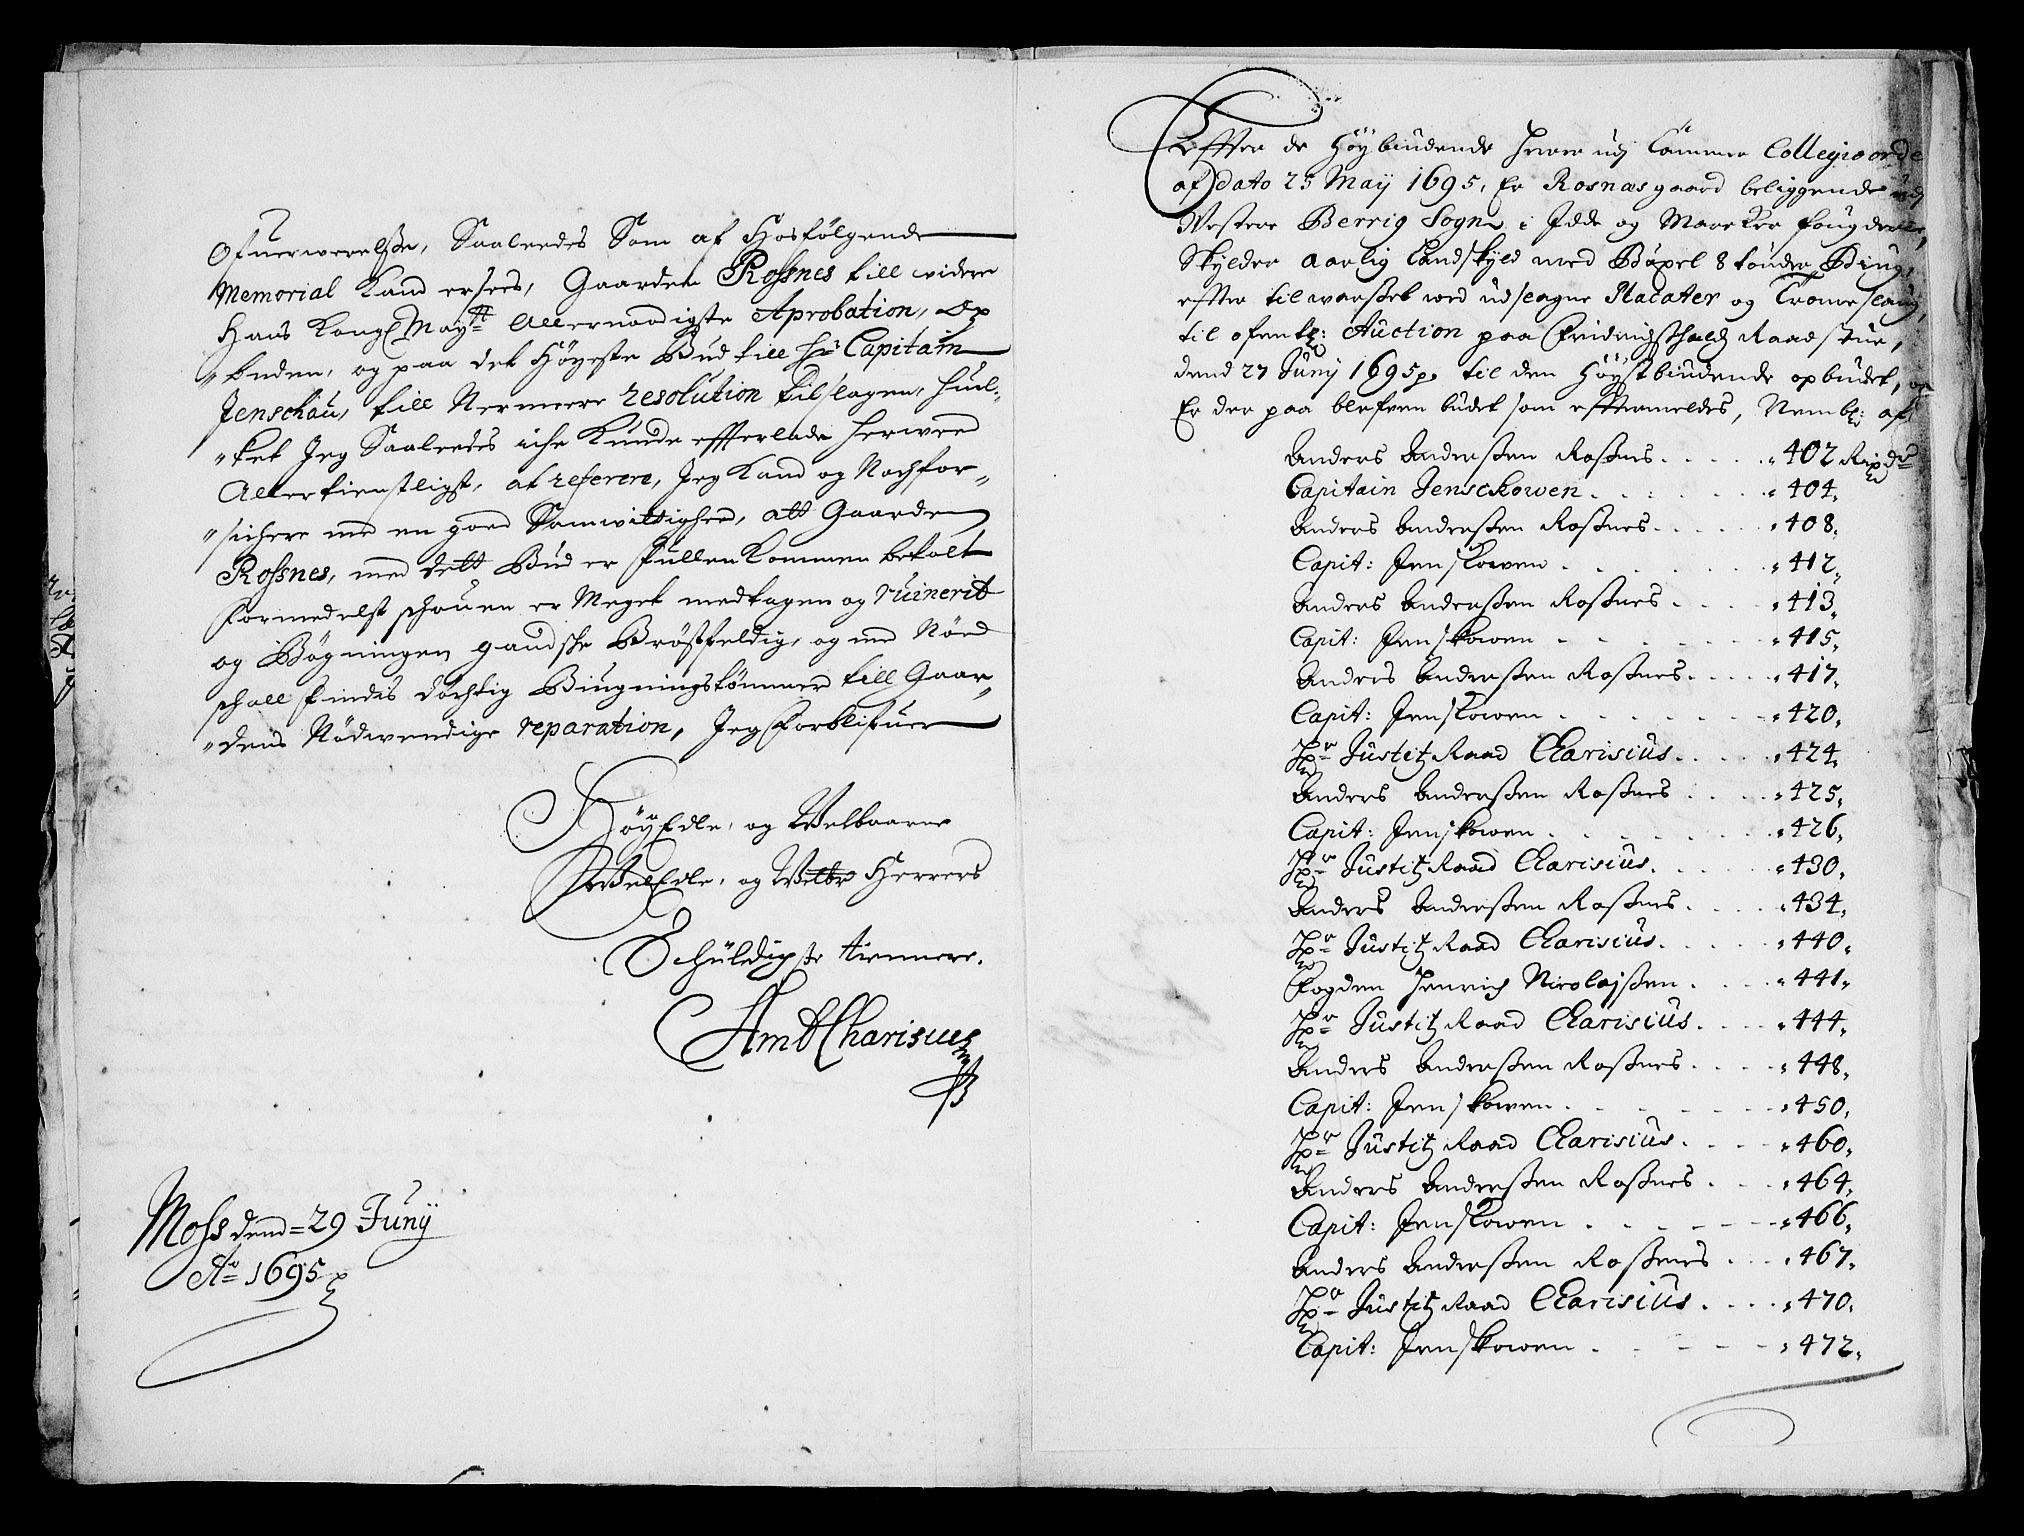 Ofuerwerelsse, Saaleedes Som af Hosfölgende
Memorial Kand ersees, Gaarden Rossnes till widere
Hans Kongl Maytt Allernaadigste Aprobation, Op
"buden, og paa det Höyeste Bud till Hr Capitain
Jenschau, till Nermere resolution tilslagen, huil-
"ket Jeg Saaleedes iche Kunde efterlade herwed
Allertienstligst, at referere, Jeg Kand og Nochfor-
"sichere med en goed Samwittighed, att Gaarden
Rossnes, med dett Bud er fullenkommen betalt
formedelst schouen er Meget medtagen og ruinerit
og Bögningen gandsche Bröstfeldig, og med Nöed
schall findis döchtig Biugningstömmer till Gaar-
"dens Nödwendige reparation, Jeg forblifuer
HöyEdle, og Welbaarne
WelEdle, og Welbr Herrers
Schüldigste tiennere.
Amb Charisius
Moss dend = 29 Junij
Ao 1695
Effter de Höybiudende Herrer udj Cammer Collegio orde
af dato 25 Maÿ 1695, Er Rosnæsgaard beliggende udj
Westere Berrig Sogn i Idde og Marcker fougderie,
Skylder aarlig Landskyld med Böxel 8 tönder Biug,
effter tilwarslet wed udslagne Placater og Tromeslaug,
til ofentl: Auction paa Fridrichshalds Raadstue,
dend 27 Junÿ 1695, til den Höystbiudende opbudet, og
Er der paa blefven budet som efftermeldes, Nembl: af
Anders Andersßen Roßnes . . . . 402 Rixdr
Capitain Jensckowen . . . . 404,
Anders Andersßen Roßnes . . . . 408,
Capit: Jenskowen . . . . 412,
Anders Andersßen Roßnes . . . . 413,
Capit: Jenskowen . . . . 415,
Anders Andersßen Roßnes . . . . 417,
Capit: Jenskowen . . . . 420,
Hr Justitz Raad Clarisius . . . . 424,
Anders Andersßen Roßnes . . . . 425,
Capit: Jenskowen . . . . 426,
Hr Justitz Raad Clarisius . . . . 430,
Anders Andersßen Roßnes . . . . 434,
Hr Justitz Raad Clarisius . . . . 440,
Fogden Henrich Nicolajsßen . . . . 441,
Hr Justitz Raad Clarisius . . . . 444,
Anders Andersßen Roßnes . . . . 448,
Capit: Jenskowen . . . . 450,
Hr Justitz Raad Clarisius . . . . 460,
Anders Andersßen Roßnes . . . . 464,
Capit: Jenskowen . . . . 466,
Anders Andersßen Roßnes . . . . 467,
Hr Justitz Raad Clarisius . . . . 470,
Capit: Jenskowen . . . . 472,